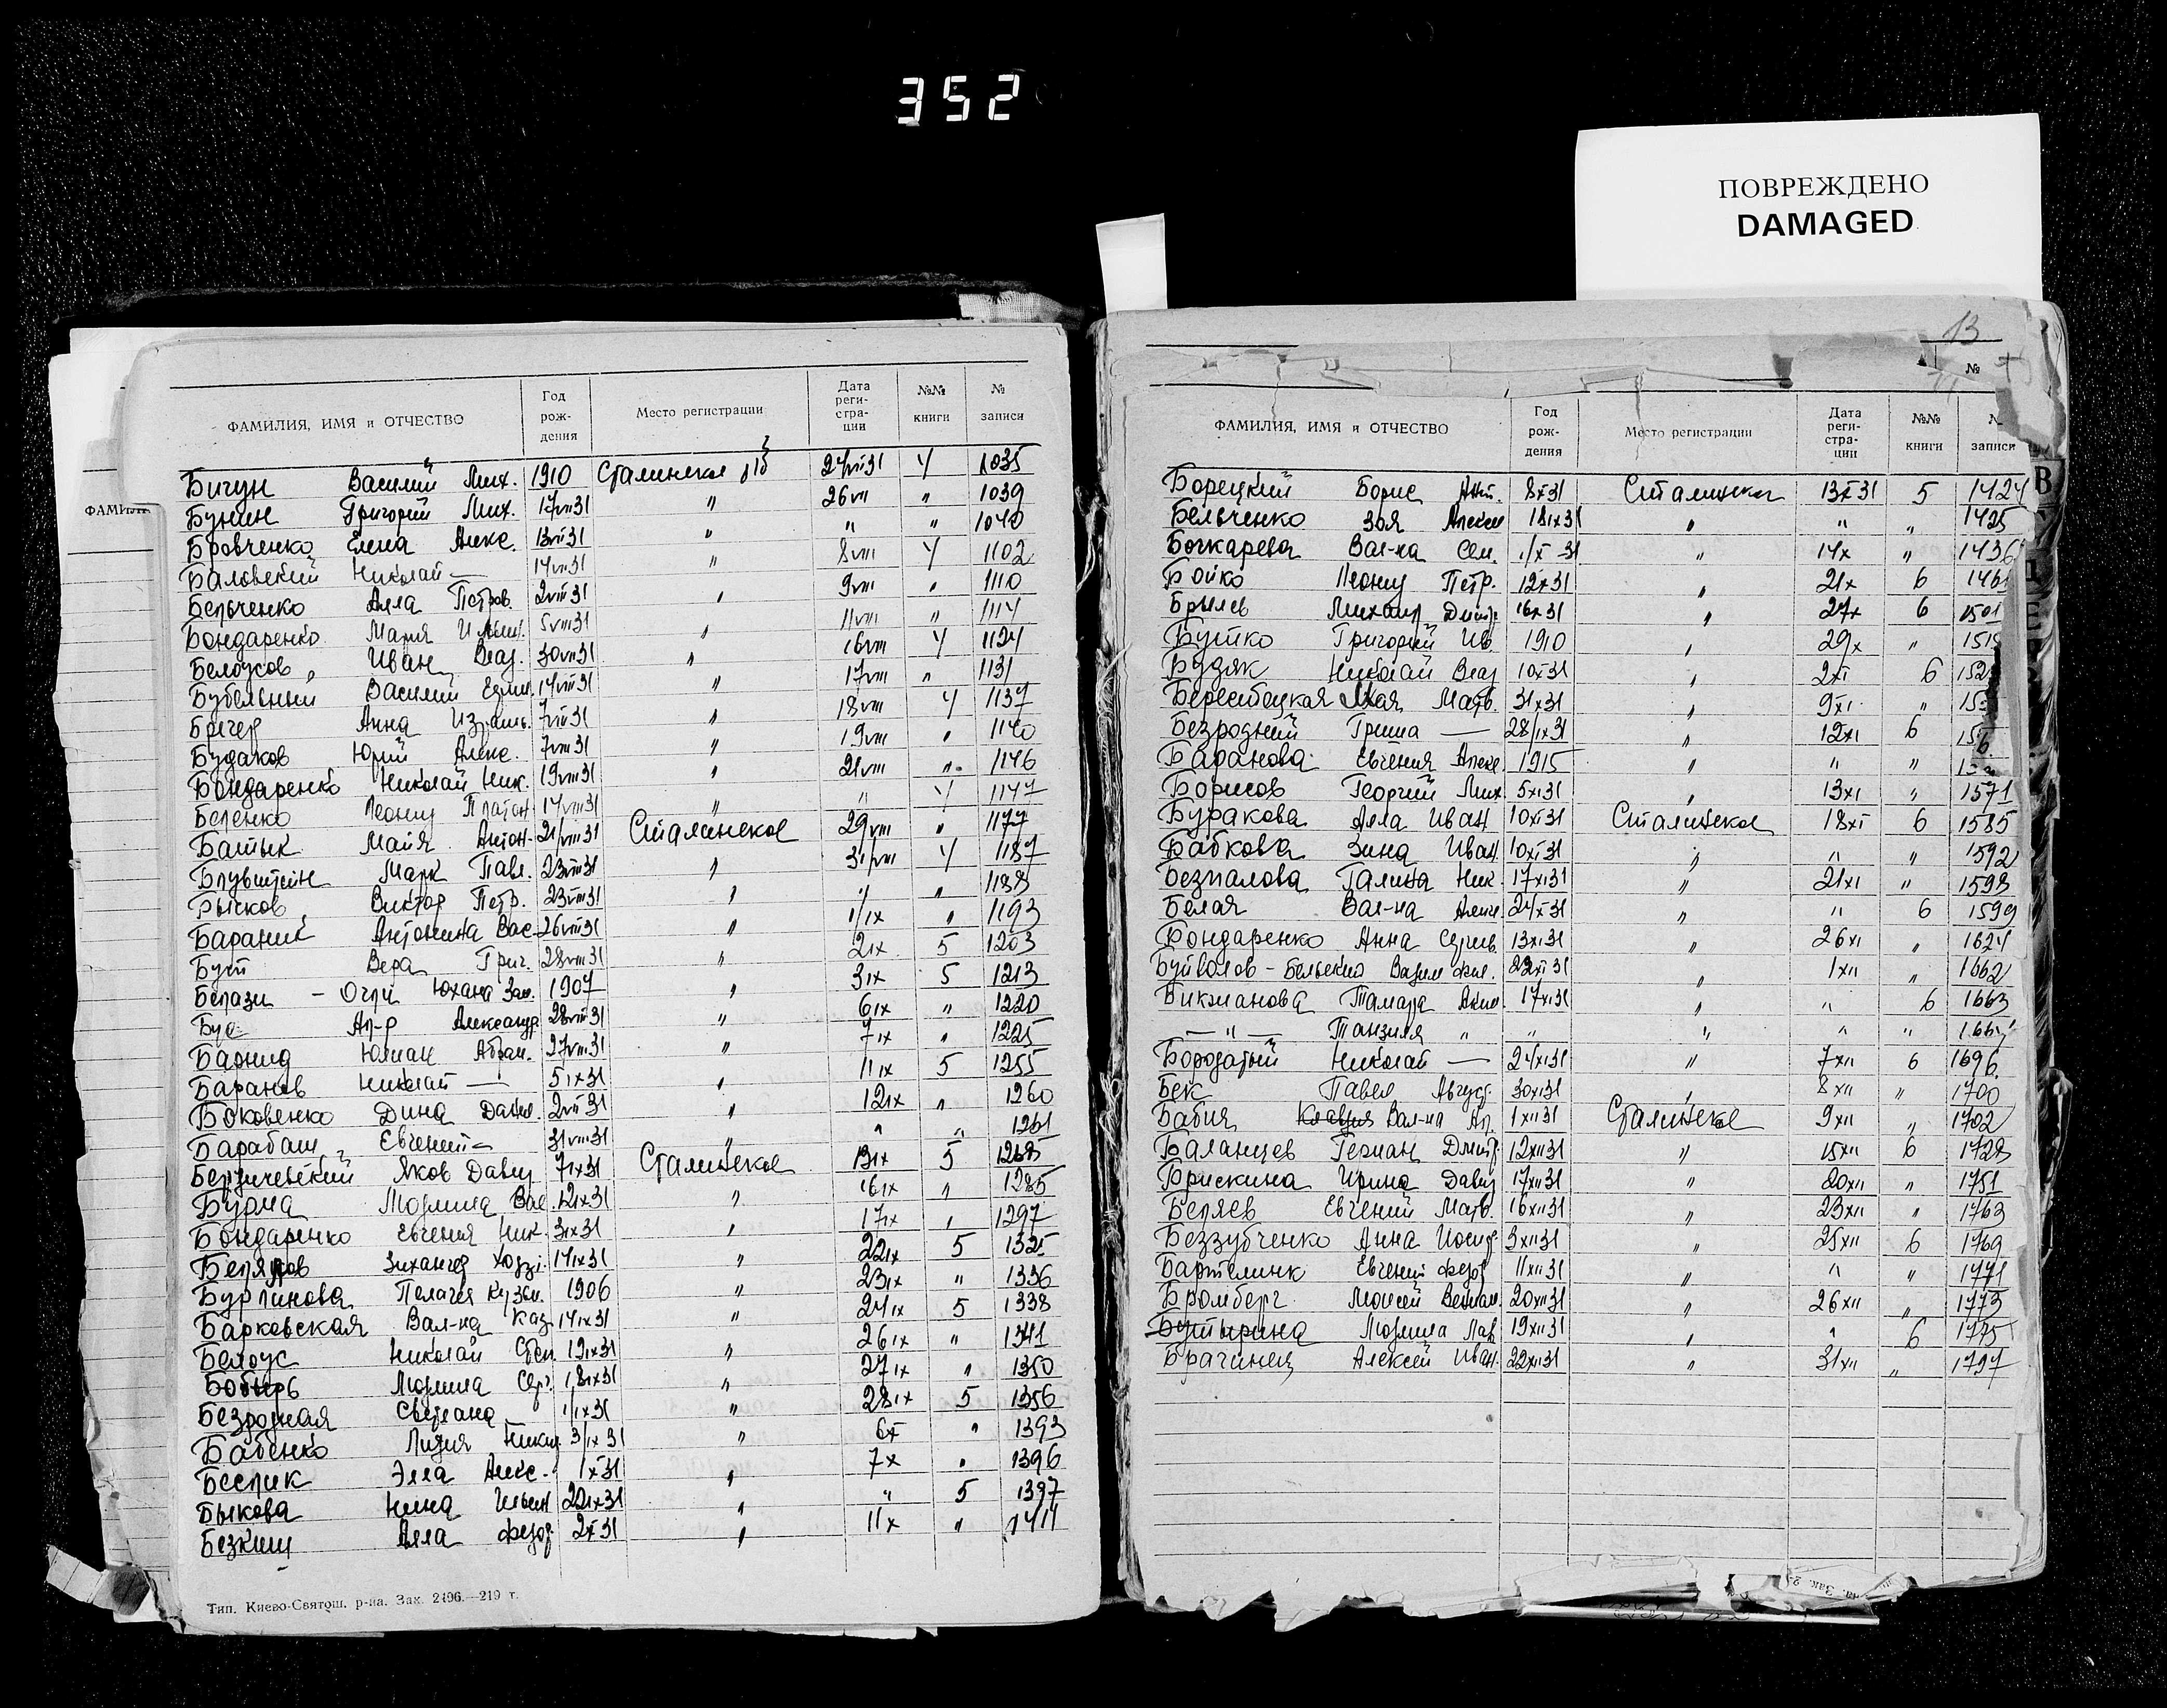 352
ПОВРЕЖДЕНО
DAMAGED
ФАМИЛИЯ, ИМЯ и ОТЧЕСТВО Год рождения Место регистрации Дата регистрации №№ книги № записи
Бичун Василий Мих. 1910 24/VII 31 4 1035
Бунин Григорий Мих. 17VII31 " 26VII " 1039
Бровченко Елена Алекс. 13VII31 " " " 1040
Баловский Николай — 14VII31 " 8VIII 4 1102
Бельченко Алла Петров. 2VIII31 " 9VIII " 1110
Бондаренко Мария 5VIII31 " 11VIII " 1114
Белоусов Иван Влад. 30VII31 " 16VIII 4 1124
Бубельный Василий 14VIII31 " 17VIII " 1131
Бречер Анна Израиль. 7VIII31 " 18VIII 4 1137
Будаков Юрий Алекс. 7VIII31 " 19VIII " 1140
Бондаренко Николай Ник. 19VIII31 " 21VIII " 1146
Беленко Леонид Платон 14VIII31 " " 4 1147
Батык Майя Антон. 21/VIII31 Сталинское 29VIII " 1177
Блувштейн Марк Павл. 23VIII31 " 31/VIII 4 1187
Рысков Виктор Петр. 23VIII31 " " " 1188
Бараник Антонина Вас. 26VIII31 " 1/IX " 1193
Бут Вера Григ. 28VIII31 " 2IX 5 1203
Белази - Огли Юхана Зал. 1907 " 3IX 5 1213
Бус Ал-р Александр. 28VIII31 " 6IX " 1220
Барнид Юлиан Абрам. 27VIII31 " 7IX " 1225
Баранов Николай — 5IX31 " 11IX 5 1255
Боковенко Дина Данил. 2VII31 " 12IX " 1260
Барабаш Евгений — 31VIII31 " " " 1261
Бердичевский Яков Давид 7IX31 Сталинское 13IX 5 1268
Бурма Людмила Вас. 12IX31 " 16IX " 1285
Бондаренко Евгения Ник. 3IX31 " 17IX " 1297
14IX31 " 22IX 5 1325
Бурлинова Пелагея Кузьм. 1906 " 23IX " 1336
Барковская Вал-на Каз. 14IX31 " 24IX 5 1338
Белоус Николай Степ. 19IX31 " 26IX " 1341
Бобырь Людмила Серг. 18IX31 " 27IX " 1350
Безродная Светлана 1/IX31 " 28IX 5 1356
Бабенко Лидия Никид. 3/IX31 " 6X " 1393
Беспик Элла Алекс. 1X31 " 7X " 1396
Быкова Нина Ильин 22IX31 " " 5 1397
Безкиш Алла Федор. 2X31 " 11X " 1411
Тип. Киево-Святош. р-на. Зак. 2496.—219 т.
13
№
ФАМИЛИЯ, ИМЯ и ОТЧЕСТВО Год рождения Место регистрации Дата регистрации №№ книги № записи
Борецкий Борис Ант. 8X31 Сталинское 13X31 5 1424
Бельченко Зоя Алексе 18IX31 " " " 1425
Бочкарева Вал-на Сем. 1/X-31 " 14X " 1436
Бойко Леонид Петр. 12X31 " 21X 6 1461
Брылев Михаил Дмитр. 16X31 " 27X 6 1501
Бутко Григорий Ив. 1910 " 29X " 1515
Будяк Николай Влад 10X31 " 2XI 6 152
Берестецкая Мая Матв. 31X31 " 9XI "
Безродний Гриша — 28/IX31 " 12XI 6 156
Баранова Евгения Алекс. 1915 " " "
Борисов Георгий Мих 5XI31 " 13XI " 1571
Буракова Алла Иван 10XI31 Сталинское 18XI 6 1585
Бабкова Зина Иван. 10XI31 " " " 1592
Безпалова Галина Ник. 17XI31 " 21XI " 1598
Белая Вал-на Алекс. 24/XI31 " " 6 1599
Бондаренко Анна Сергеев. 13XI31 " 26XI " 1624
Буйволов - Бельский Вадим Фил. 22XI31 " 1XII " 1662
Бикманова Тамара Аким. 17XI31 " " 6 1663
— " — Танзиля " " " " " 1664
Бородатый Николай — 24XI31 " 7XII 6 1696
Бек Павел Август. 30XI31 " 8XII " 1700
Бабич Клавдия Вал-на Ал. 1XII31 Сталинское 9XII " 1702
Баланцев Герман Дмитр. 12XII31 " 15XII 6 1728
Брискина Ирина Давид 17XII31 " 20XII " 1751
Беляев Евгений Матв. 16XII31 " 23XII " 1763
Беззубченко Анна Иосиф. 3XII31 " 25XII 6 1769
Бартелинк Евгений Федор 11XII31 " " " 1771
Бромберг Моисей Вениам. 20XII31 " 26XII " 1773
Бутырина Людмила Лав. 19XII31 " " 6 1775
Брагинец Алексей Иван. 22XII31 " 31XII " 1797